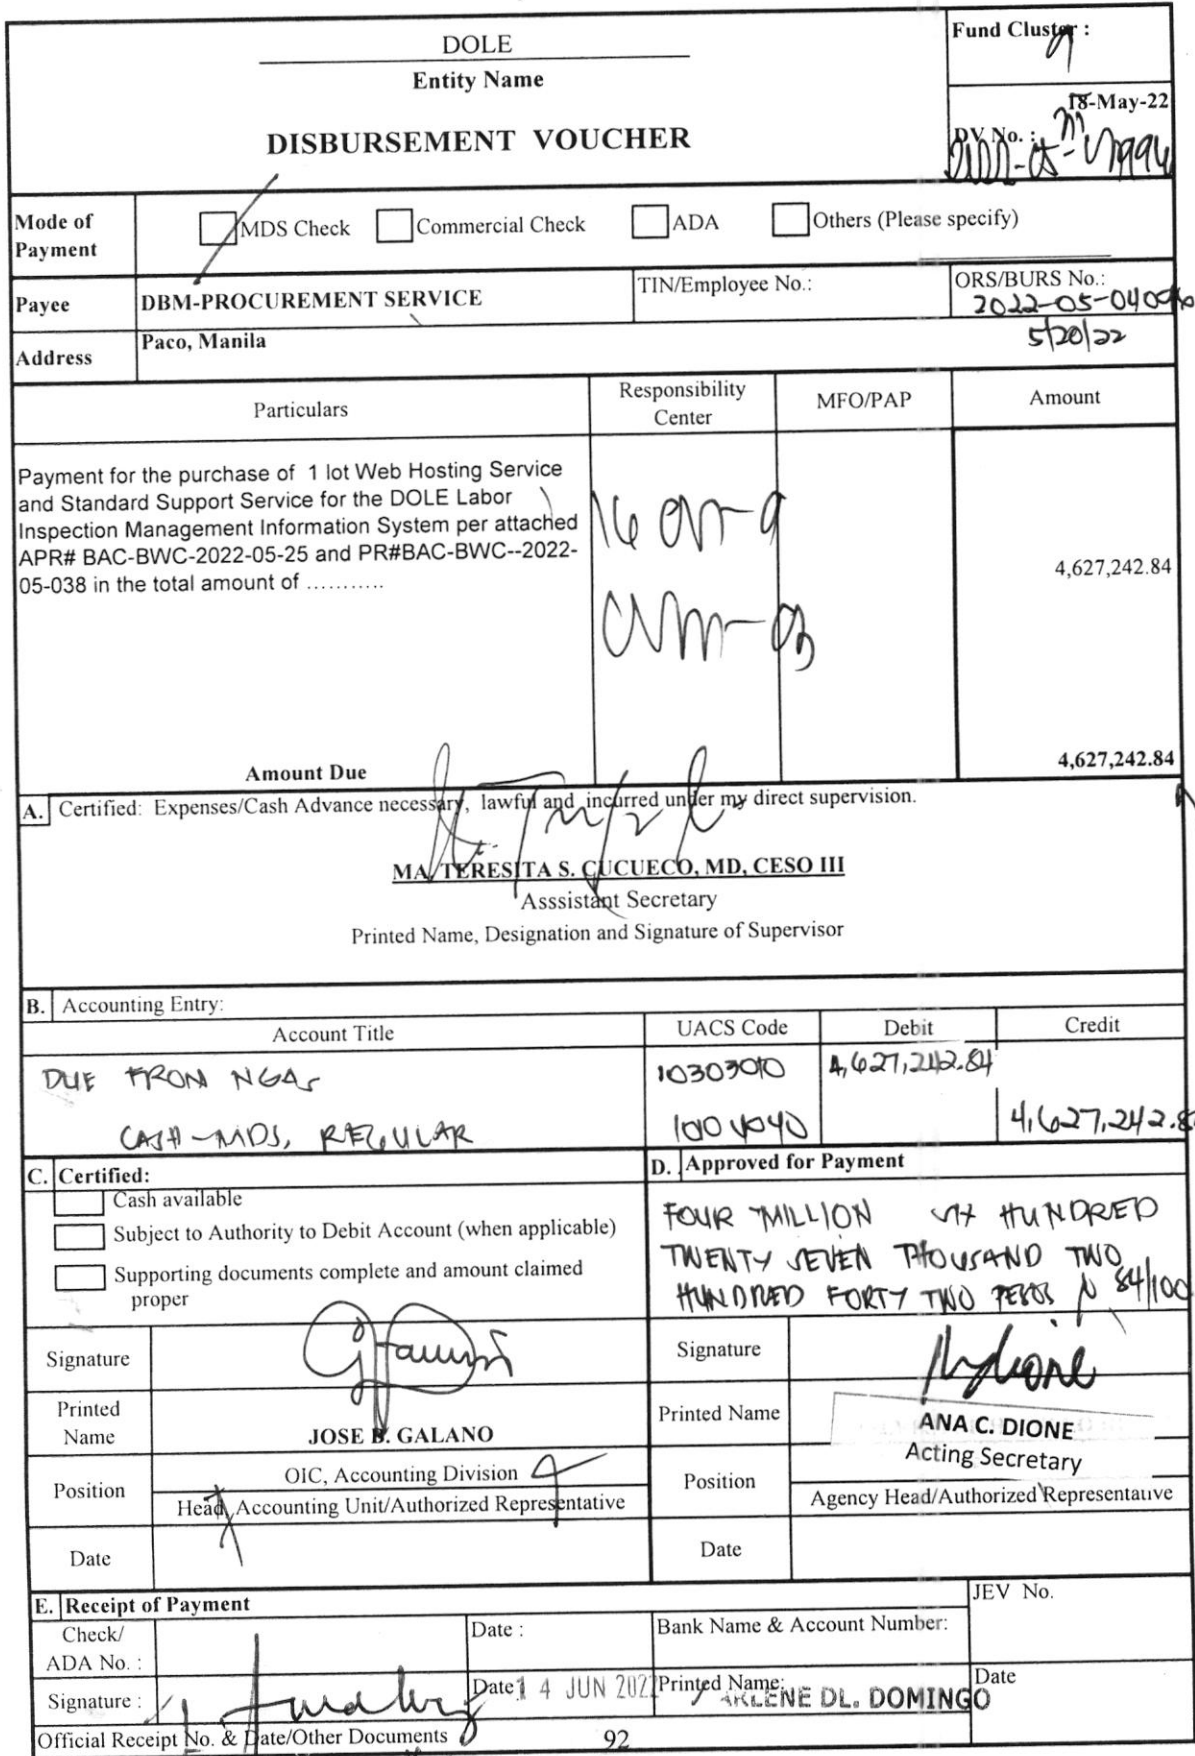 DOLE
Entity Name
DISBURSEMENT VOUCHER
Fund Cluster :
9
18-May-22
DV No. :
Mode of Payment
MDS Check
Commercial Check
ADA
Others (Please specify)
Payee
DBM-PROCUREMENT SERVICE
TIN/Employee No.:
ORS/BURS No.:
5/20/22
Address
Paco, Manila
Particulars
Responsibility Center
MFO/PAP
Amount
Payment for the purchase of 1 lot Web Hosting Service
and Standard Support Service for the DOLE Labor
Inspection Management Information System per attached
APR# BAC-BWC-2022-05-25 and PR#BAC-BWC--2022-
05-038 in the total amount of ...........
4,627,242.84
Amount Due
4,627,242.84
A. Certified: Expenses/Cash Advance necessary, lawful and incurred under my direct supervision.
MA. TERESITA S. CUCUECO, MD, CESO III
Asssistant Secretary
Printed Name, Designation and Signature of Supervisor
B. Accounting Entry:
Account Title
UACS Code
Debit
Credit
DUE FROM NGAs
10303010
4,627,242.84
CASH-MDS, REGULAR
C. Certified:
Cash available
Subject to Authority to Debit Account (when applicable)
Supporting documents complete and amount claimed
proper
D. Approved for Payment
FOUR MILLION SIX HUNDRED
TWENTY SEVEN THOUSAND TWO
HUNDRED FORTY TWO PESOS 84/100
Signature
Signature
Printed Name
JOSE B. GALANO
Printed Name
ANA C. DIONE
Position
OIC, Accounting Division
Head, Accounting Unit/Authorized Representative
Position
Acting Secretary
Agency Head/Authorized Representative
Date
Date
E. Receipt of Payment
JEV No.
Check/
ADA No. :
Date :
Bank Name & Account Number:
Signature :
Date
14 JUN 2022
Printed Name:
ARLENE DL. DOMINGO
Date
Official Receipt No. & Date/Other Documents
92